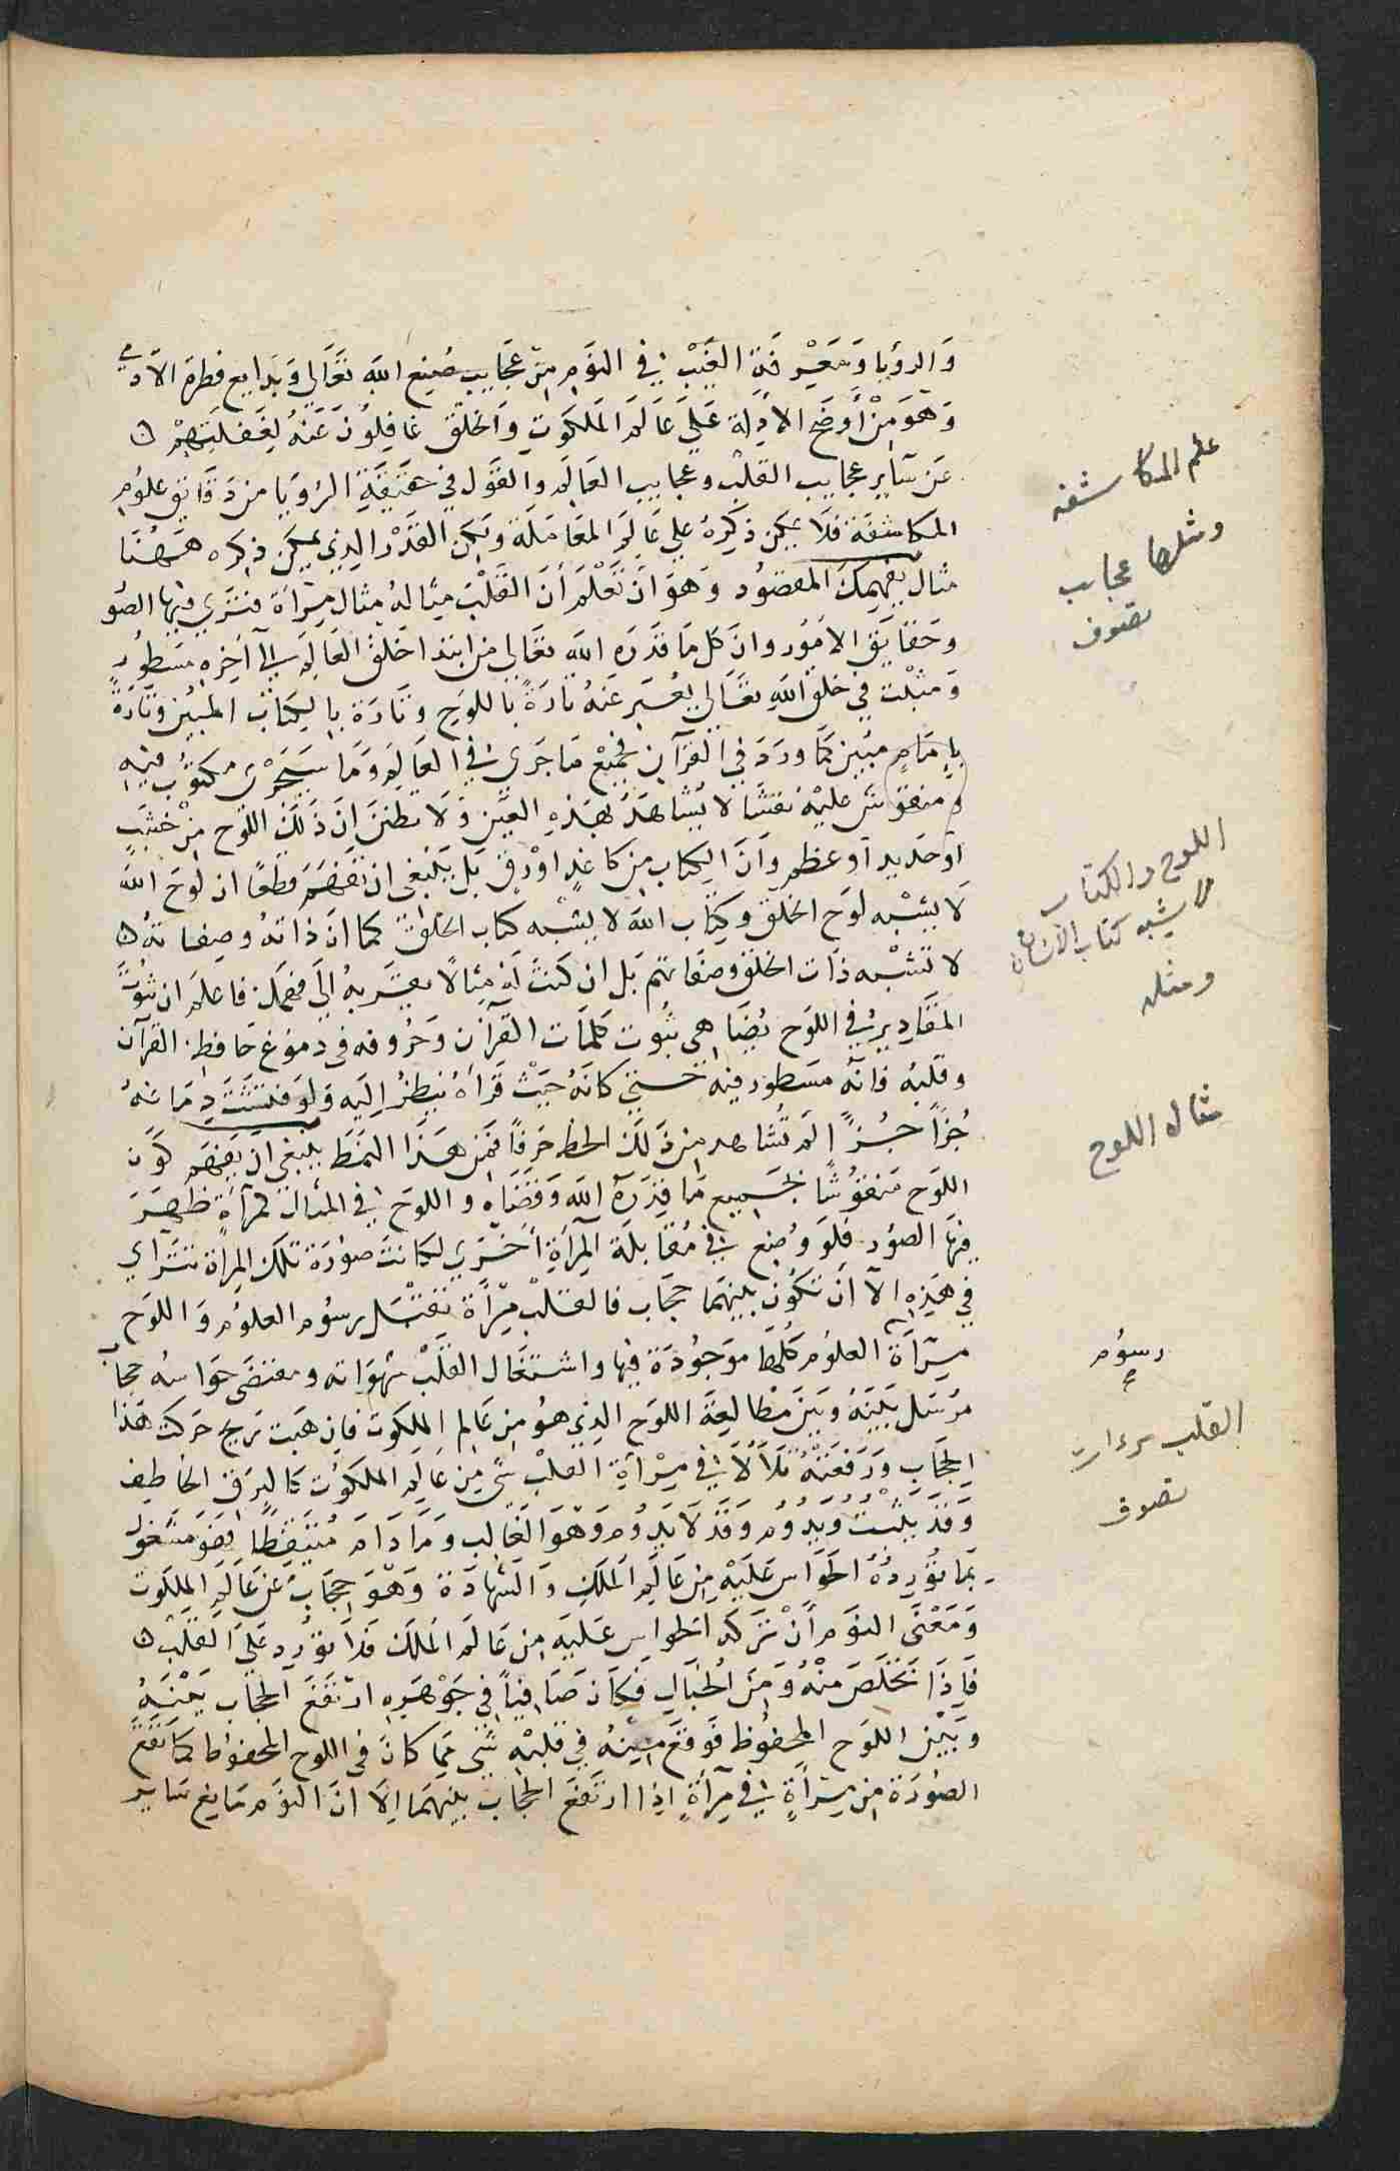 والرؤيا ومعرفة الغيب في النوم من عجايب صنع الله تعالى وبدايع فطرة الآدمي
وهو من أوضح الادلة على عالم الملكوت والخلق غافلون عنه لغفلتهم
عن ساير عجايب القلب وعجايب العالم والقول في حقيقة الرؤيا من دقايق علوم
المكاشفة فلا يمكن ذكره على عالم المعاملة ولكن القدر الذي يمكن ذكره ههنا
مثال يفهمك المقصود وهو ان تعلم أن القلب مثاله مثال مرآة فتتري فيها الصو
وحقايق الامور وان كل ما قدره الله تعالى من ابتدا خلق العالم الى آخره مسطور
ومثبت في خلق الله تعالى يعبر عنه تارة باللوح وتارة بالكتاب المبين وتارة
بإمام مبين كما ورد في القرآن فجميع ما جرى في العالم وما سيجري مكتوب فيه
ومنقوش عليه نقشا لا يشاهد بهذه العين ولا تظنن ان ذلك اللوح من خشب
او حديد او عظم وأن الكتاب من كاغد او رق بل ينبغي ان تفهم قطعا ان لوح الله
لا يشبه لوح الخلق وكتاب الله لا يشبه كتاب الخلق كما ان ذاته وصفاته
لا تشبه ذات الخلق وصفاتهم بل ان كنت له مثالا يقربه الى فهمك فاعلم ان ثبوت
المقادير في اللوح يضاهي ثبوت كلمات القرآن وحروفه في دموغ حافظ القرآن
وقلبه فانه مسطور فيه حتى كانه حيث قرأه ينظر إليه ولو فتشت دماغه
جزأ جزأ لم تشاهد من ذلك الخط حرفا فمن هذا النمط ينبغي ان يفهم كون
اللوح منقوشا بجميع ما قدره الله وقضاه واللوح في المثال كمرآة ظهر
فيها الصور فلو وضع في مقابلة المرآة أخري لكانت صورة تلك المرآة تترآي
في هذه الا ان تكون بينهما حجاب فالقلب مرآة تقبل رسوم العلوم واللوح
مرآة العلوم كلها موجودة فيها واشتغال القلب شهواته ومقتضى حواسه حجاب
مرسل بينه وبين مطالعة اللوح الذي هو من عالم الملكوت فإن هبت ريح حركت هذا
الحجاب ورفعته تلألأ في مرآة القلب شي من عالم الملكوت كالبرق الخاطف
وقد يثبت ويدوم وقد لا يدوم وهو الغالب وما دام متيقظا فهو مشغول
بما تورده الحواس عليه من عالم الملك والشهادة وهو حجاب عن عالم الملكوت
ومعنى النوم أن تركد الحواس عليه من عالم الملك فلا تورد على القلب
فإذا تخلص منه ومن الخيال فكان صافيا في جوهره ارتفع الحجاب بينه
وبين اللوح المحفوظ فوقع منه في قلبه شي مما كان في اللوح المحفوظ كما تقع
الصورة من مرآة في مرآة اذا ارتفع الحجاب بينهما إلا ان النوم مانع ساير
علم المكاشفه
ومثلها عجايب
تصوف
اللوح والكتاب
لا يشبه كتاب الانسان
ومثله
مثال اللوح
رسوم
القلب مرءات
تصوف